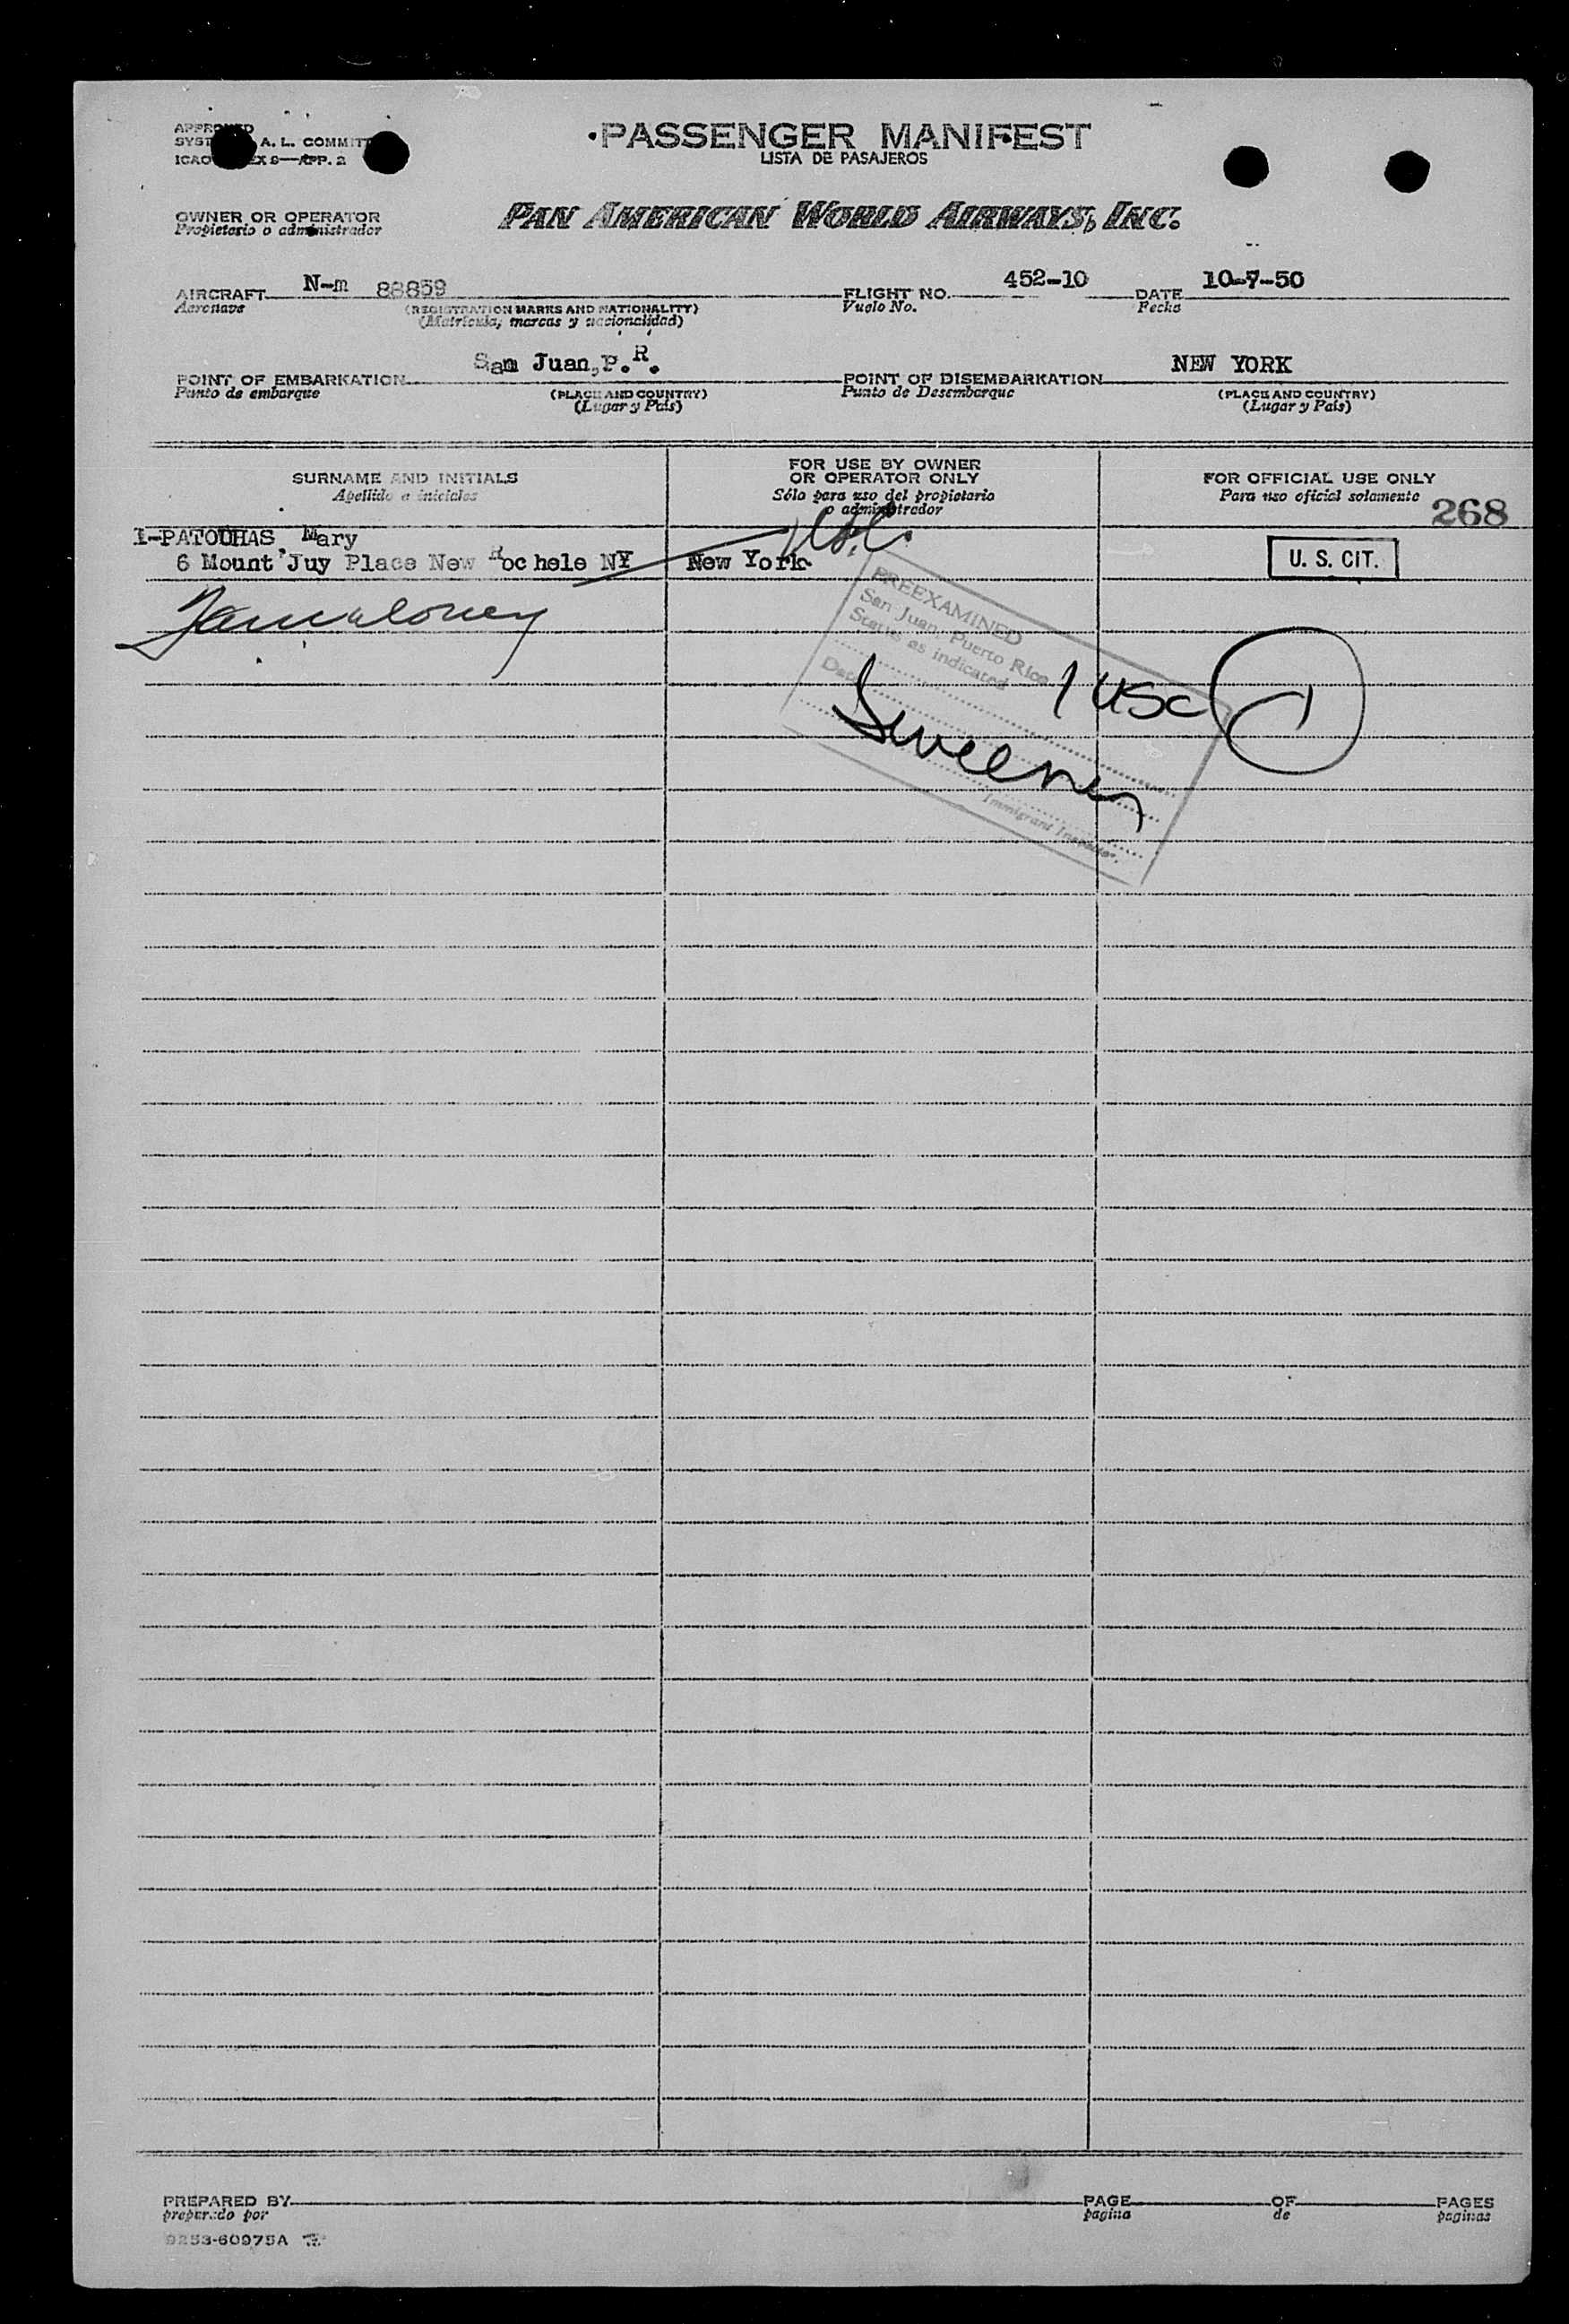 PASSENGER MANIFEST
LISTA DE PASAJEROS
A. L. COMMIT
APP. 2
OWNER OR OPERATOR
Propietario o administrador
PAN AMERICAN WORLD AIRWAYS, INC.
AIRCRAFT N-m 88859 FLIGHT NO. 452-10 DATE 10-7-50
Aeronave (REGISTRATION MARKS AND NATIONALITY) Vuelo No. Fecha
(Matrícula, marcas y nacionalidad)
POINT OF EMBARKATION San Juan, P.R. POINT OF DISEMBARKATION NEW YORK
Punto de embarque (PLACE AND COUNTRY) Punto de Desembarque (PLACE AND COUNTRY)
(Lugar y País) (Lugar y País)
SURNAME AND INITIALS
Apellido e iniciales
FOR USE BY OWNER
OR OPERATOR ONLY
Sólo para uso del propietario
o administrador
FOR OFFICIAL USE ONLY
Para uso oficial solamente
268
1-PATOUHAS Mary
6 Mount Juy Place New Rochele NY New York
U. S. CIT.
PREEXAMINED
San Juan, Puerto Rico
Status as indicated
Date
1 USC 1
Sweeney
Immigrant Inspector.
PREPARED BY PAGE OF PAGES
preparado por pagina de paginas
9253-60975A